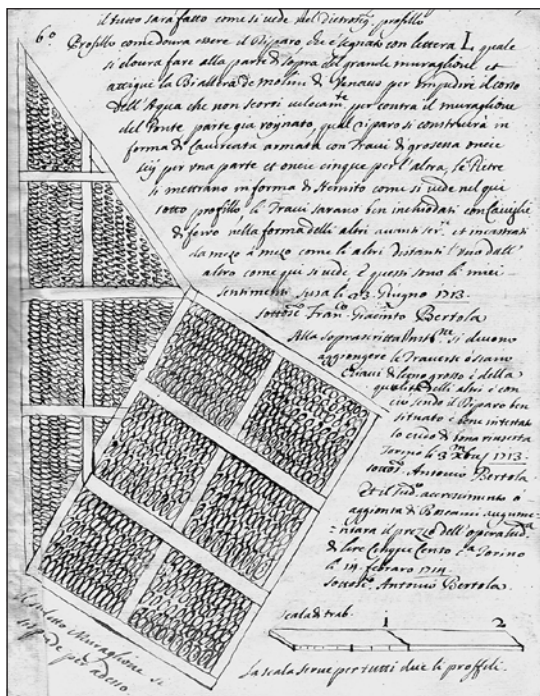 il tutto sarà fatto come si vede nel dietroseg. profillo
6.º Profillo come dovrà essere il Riparo, che è segnato con lettera L quale
si dovrà fare alla parte di sopra del grande muraglione et
attigue la Bialera de molini di Venaus per impedire il corso
dell'Aqua che non scorti velocem.te per contra il muraglione
del Ponte parte già roÿnato, qual riparo si construirà in
forma di armata con Travi di grosessa oncie
seij per una parte et oncie cinque per l'altra, le Pietre
si mettrano in forma di sternito come si vede nel qui
sotto profillo, li Travi sarano ben inchiodati con Caviglie
di ferro nella forma delli altri avanti et incastrati
da mezo à mezo come li altri distanti l'uno dall'
altro come qui si vede è questi sono li miei
sentimenti Susa li 23 Giugno 1713.
sottos. Fran.co Giacinto Bertola
Alla soprascritta si devono
aggiongere le Traverse ò siano
Chiavi di legno grosso è della
qualità delli altri è con
ciò sendo il Riparo ben
situato è bene intestato
lo credo di bona riuscita
Torino li 3 1713
sottos. Antonio Bertola
Et il sud.º accrescimento ò
aggionta di augume=
=ntarà il prezzo dell'opera sud.a
di lire Cinque Cento Torino
li 14 febraro 1714
sottos. Antonio Bertola
Muraglione si
vede per adesso
Scala di trab.
1 2
La scala serve per tutti due li proffili.